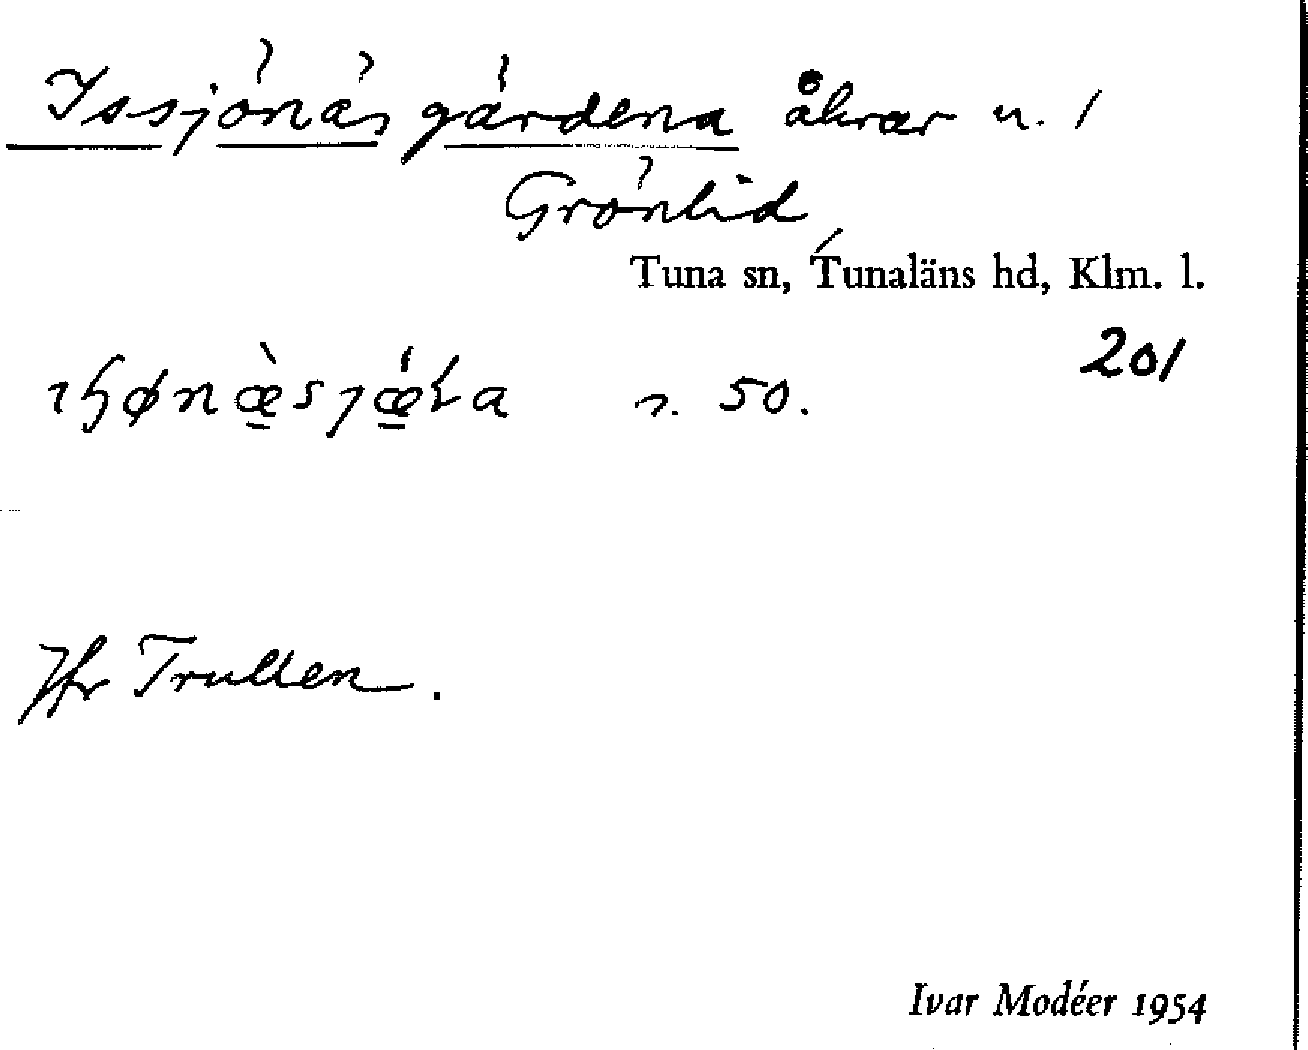 Issjönäsgärdena åkrar u. /
Grönlid /
Tuna sn, Tunaläns hd, Klm. l.
201
s. 50.
Jfr Trullen.
Ivar Modéer 1954